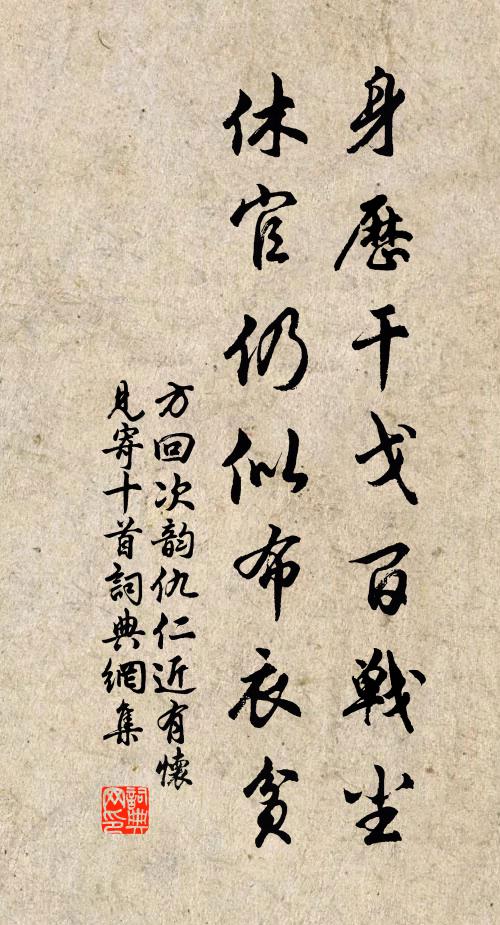 身歷干戈百戰尘
休官仍似布衣貧
方回次韵仇仁近有懷
見寄十首詞典網集
詞典
网印